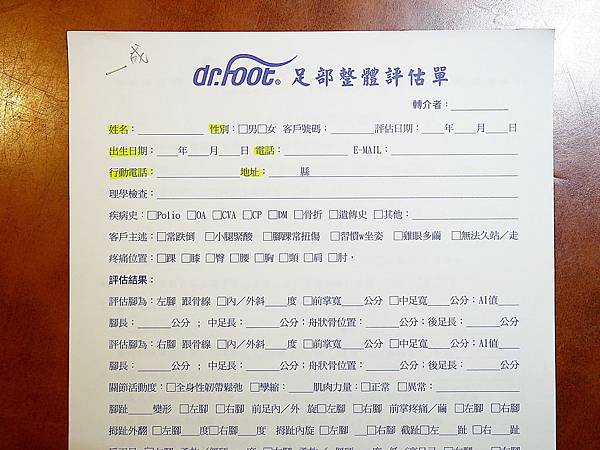 一成
dr.foot® 足部整體評估單
轉介者：
姓名： 性別：□男□女 客戶號碼： 評估日期： 年 月 日
出生日期： 年 月 日 電話： E-MAIL：
行動電話： 地址： 縣
理學檢查：
疾病史：□Polio □OA □CVA □CP □DM □骨折 □遺傳史 □其他：
客戶主述：□常跌倒 □小腿緊酸 □腳踝常扭傷 □習慣w坐姿 □雞眼多繭 □無法久站／走
疼痛位置：□踝 □膝 □臀 □腰 □胸 □頸 □肩 □肘，
評估結果：
評估腳為：左腳 跟骨線 □內／外斜 度 □前掌寬 公分 □中足寬 公分；AI值
腳長： 公分 ； 中足長： 公分；舟狀骨位置： 公分；後足長： 公分
評估腳為：右腳 跟骨線 □內／外斜 度 □前掌寬 公分 □中足寬 公分；AI值
腳長： 公分 ； 中足長： 公分；舟狀骨位置： 公分；後足長： 公分
關節活動度：□全身性韌帶鬆弛 □攣縮： 肌肉力量：□正常 □異常：
腳趾 變形 □左腳 □右腳 前足內／外 旋□左腳 □右腳 前掌疼痛／繭 □左腳 □右腳
拇趾外翻 □左腳 度□右腳 度 拇趾內旋 □左腳 □右腳 截趾□左 趾 □右 趾